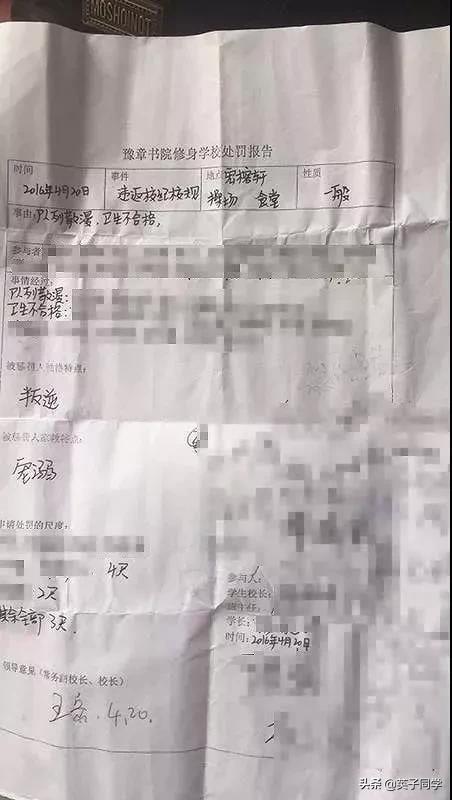 MOSHOINOT
豫章书院修身学校处罚报告
时间 事件 地点 性质
2016年4月20日 违返校纪校规 操场 食堂 一般
事由:队列散漫,卫生不合格,
参与者
事情经过:
队列散漫:
卫生不合格:
被惩罚人性格特点:
叛逆
被惩罚人家教特点:
宠溺
申请处罚的尺度:
4天
2天
其余全部3天.
参与人:
学生校长:
学长:
时间:2016年4月20日
领导意见(常务副校长、校长)
4.20.
头条 @英子同学